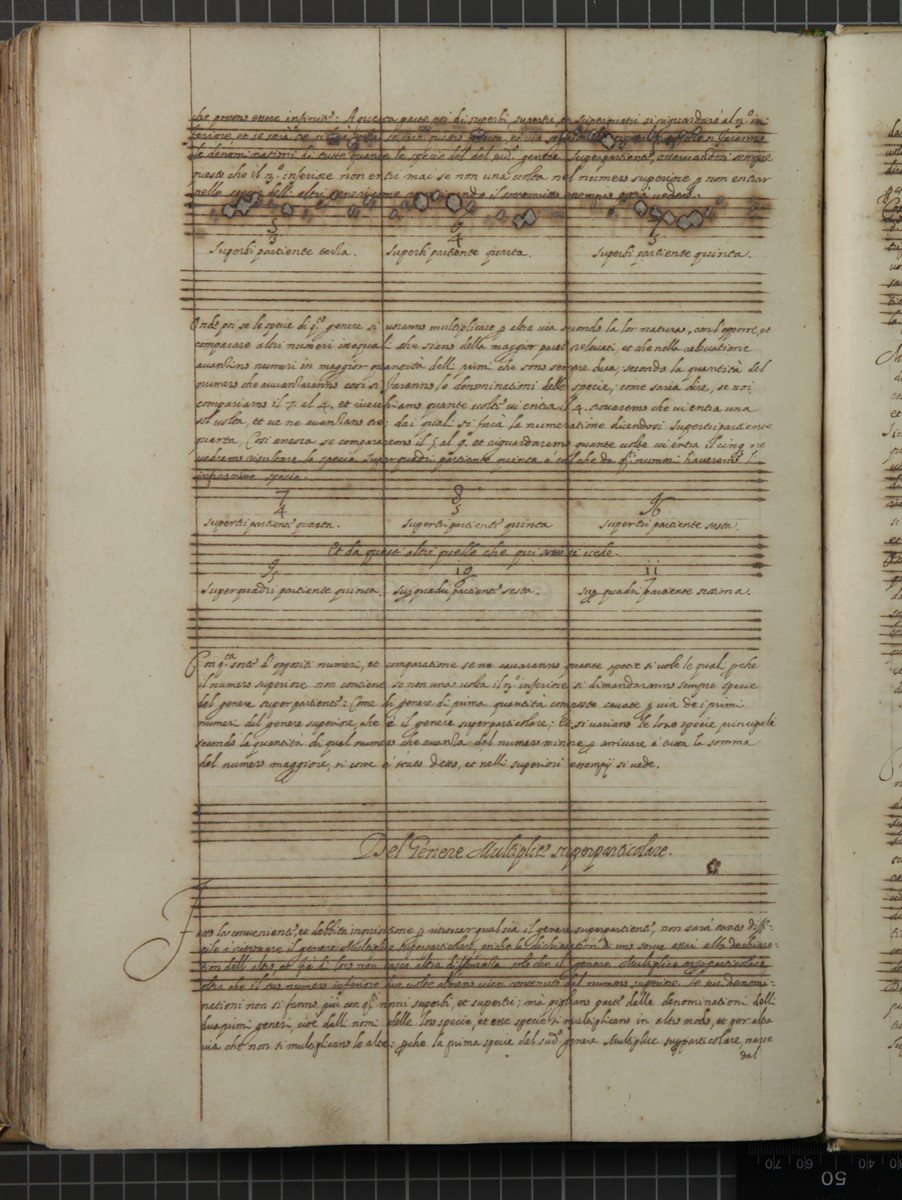 che ponno essere infiniti:
le denominationi di tutte quante le specie del genere Superpartiente, osservandosi sempre
questo che il n.º inferiore non entri mai se non una volta nel numero superiore, non entrar
nelle specie delli altri generi
5 6 7
3 4 5
superbi partiente terza. superbi partiente quarta. superbi partiente quinta.
Onde poi se le specie di q.to genere si voranno multiplicare p altra via secondo la lor natura, con l'opporre, et
comparare altri numeri inequali che siano della maggior parte relevati, et che nella relevatione
avanzino numeri in maggior quantità delli primi che sono sempre dua, secondo la quantità del
numero che avanzaranno così si faranno le denominationi delle specie, come saria dire, se noi
compariamo il 7. al 4. et riverchiamo quante volte vi entra il 4. trovaremo che vi entra una
sol volta, et ve ne avanzano tre; dai quali si farà la numeratione dicendosi supertripartiente
quarta, Così ancora se compararemo il 5 al 9. et riguardaremo quante volte vi entra il cinq ne
vedremo risultare la specie superquadri partiente quinta
infrascritte specie.
7 8 9
4 5 6
supertri partiente quarta. supertri partiente quinta supertri partiente sesta.
Et da questi altri quelle che qui sotto si vede.
9 10 11
5 6 7
Superquadri partiente quinta. supquadri partiente sesta. supquadri partiente settima.
Con q.ta sorte d'oppositi numeri, et comparatione se ne cavaranno quante specie si vole le quali pche
il numero superiore non contiene se non una volta il n.º inferiore si dimandaranno sempre specie
del genere superpartiente: Come di genere di prima quantità composte cavate p via de i primi
numeri del genere superiore, che è il genere superparticolare; Et si variano le loro specie principali
secondo la quantità di quel numero che avanza del numero minore p arrivare à tutta la somma
del numero maggiore, si come è stato detto, et nelli superiori essempij si vede.
Del Genere Multiplice superparticolare.
Fatto lo conveniente, et debbita inquisitione p ritrovar qual sia il genere superpartiente, non sarà tanto diffi-
cile à ritrovare il genere Multiplice superparticolare, perche la dichiaratione di uno serve assai alla dechiara-
tion dell'altro, et frà di loro non casca altra differenza, solo che il genere Multiplice superparticolare
oltra che il suo numero inferiore due volte almeno vien contenuto del numero superiore, le sue denomi-
nationi non si fanno più con q.sti nomi superbi, et supertri; mà pigliano parte delle denominationi delli
dua primi generi, cioè dalli nomi delle loro specie, et esse specie si multiplicano in altro modo, et per altra
via che non si multiplicano le altre: pche la prima specie del sud.º genere Multiplice supparticolare, nasce
dal